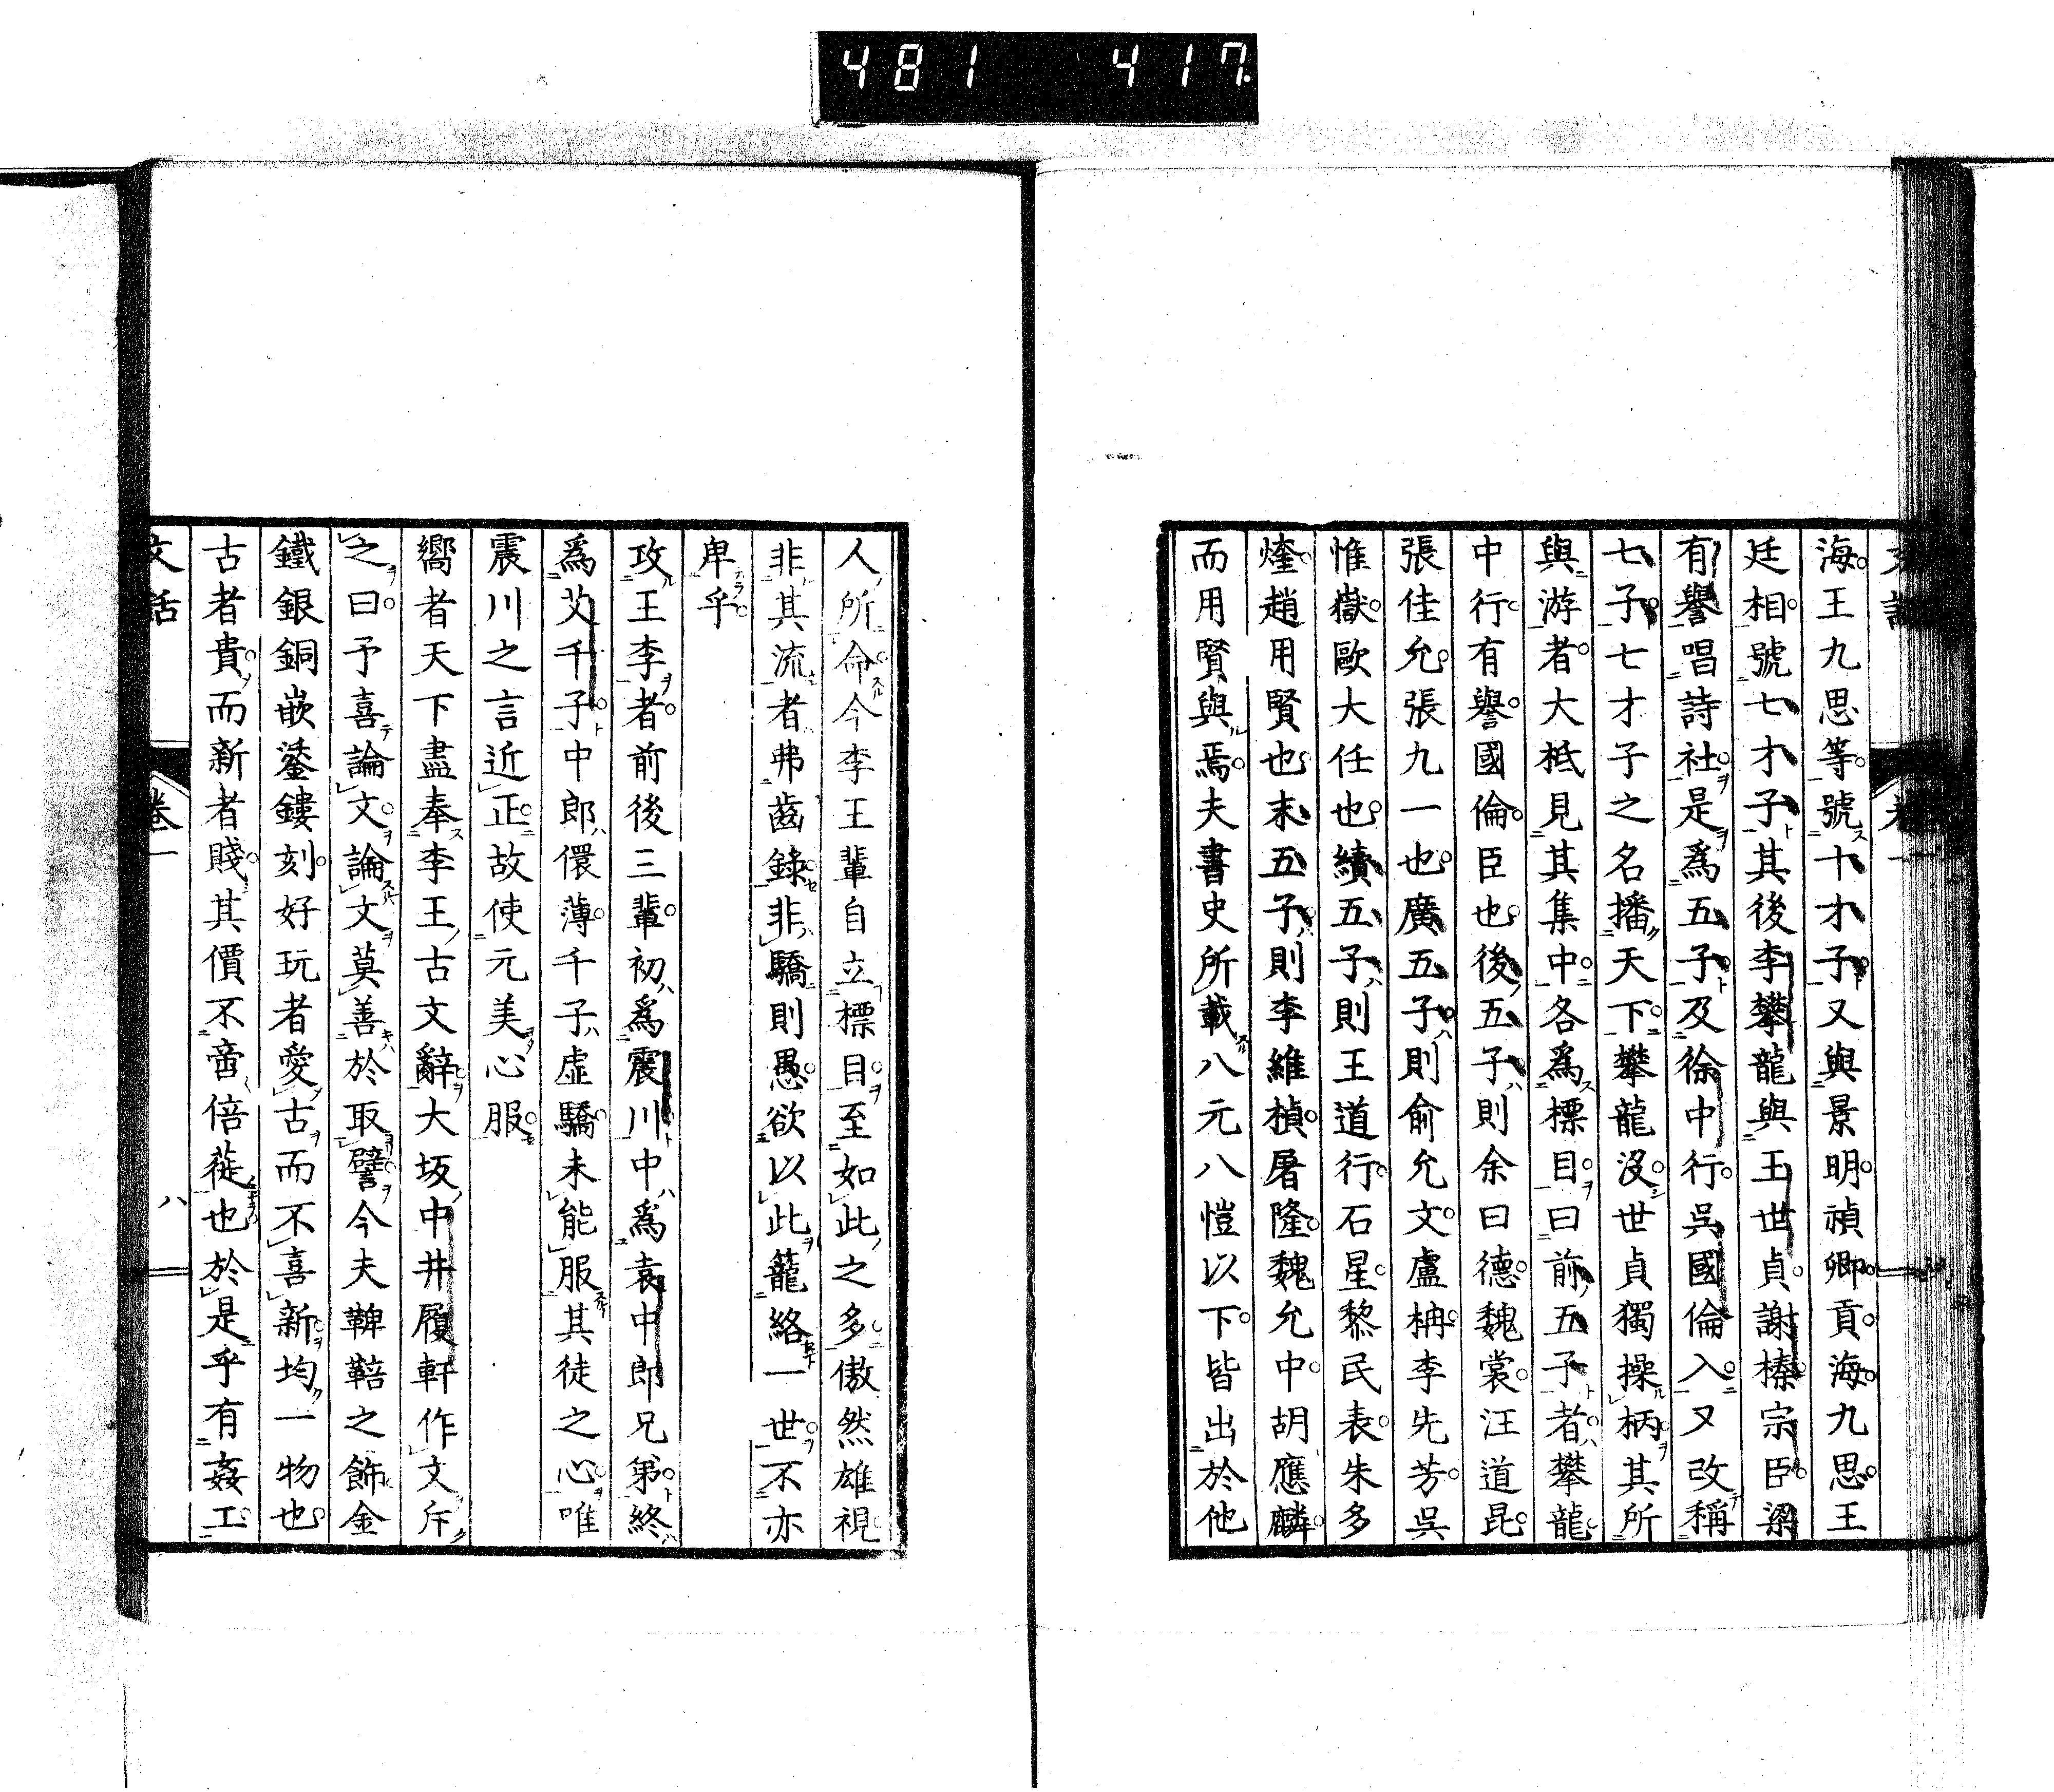 481 417
海王九思等號十才子又與景明禎卿貢海九思王
廷相號七才子其後李攀龍與王世貞謝榛宗臣梁
有譽唱詩社是爲五子及徐中行吳國倫入又改稱
七子七才子之名播天下攀龍沒世貞獨操柄其所
與游者大柢見其集中各爲標目曰前五子者攀龍
中行有譽國倫臣也後五子則余曰德魏裳汪道昆
張佳允張九一也廣五子則俞允文盧柟李先芳吳
惟嶽歐大任也續五子則王道行石星黎民表朱多
煃趙用賢也末五子則李維楨屠隆魏允中胡應麟
而用賢與焉夫書史所載八元八愷以下皆出於他
人所命今李王輩自立標目至如此之多傲然雄視
非其流者弗齒錄非驕則愚欲以此籠絡一世不亦
卑乎
攻王李者前後三輩初爲震川中爲袁中郎兄第終
爲艾千子中郎儇薄千子虛驕未能服其徒之心唯
震川之言近正故使元美心服
嚮者天下盡奉李王古文辭大坂中井履軒作文斥
之曰予喜論文論文莫善於取譬今夫鞞鞛之飾金
鐵銀銅嵌鎏鏤刻好玩者愛古而不喜新均一物也
古者貴而新者賤其價不啻倍蓰也於是乎有姦工
文話 卷一 八